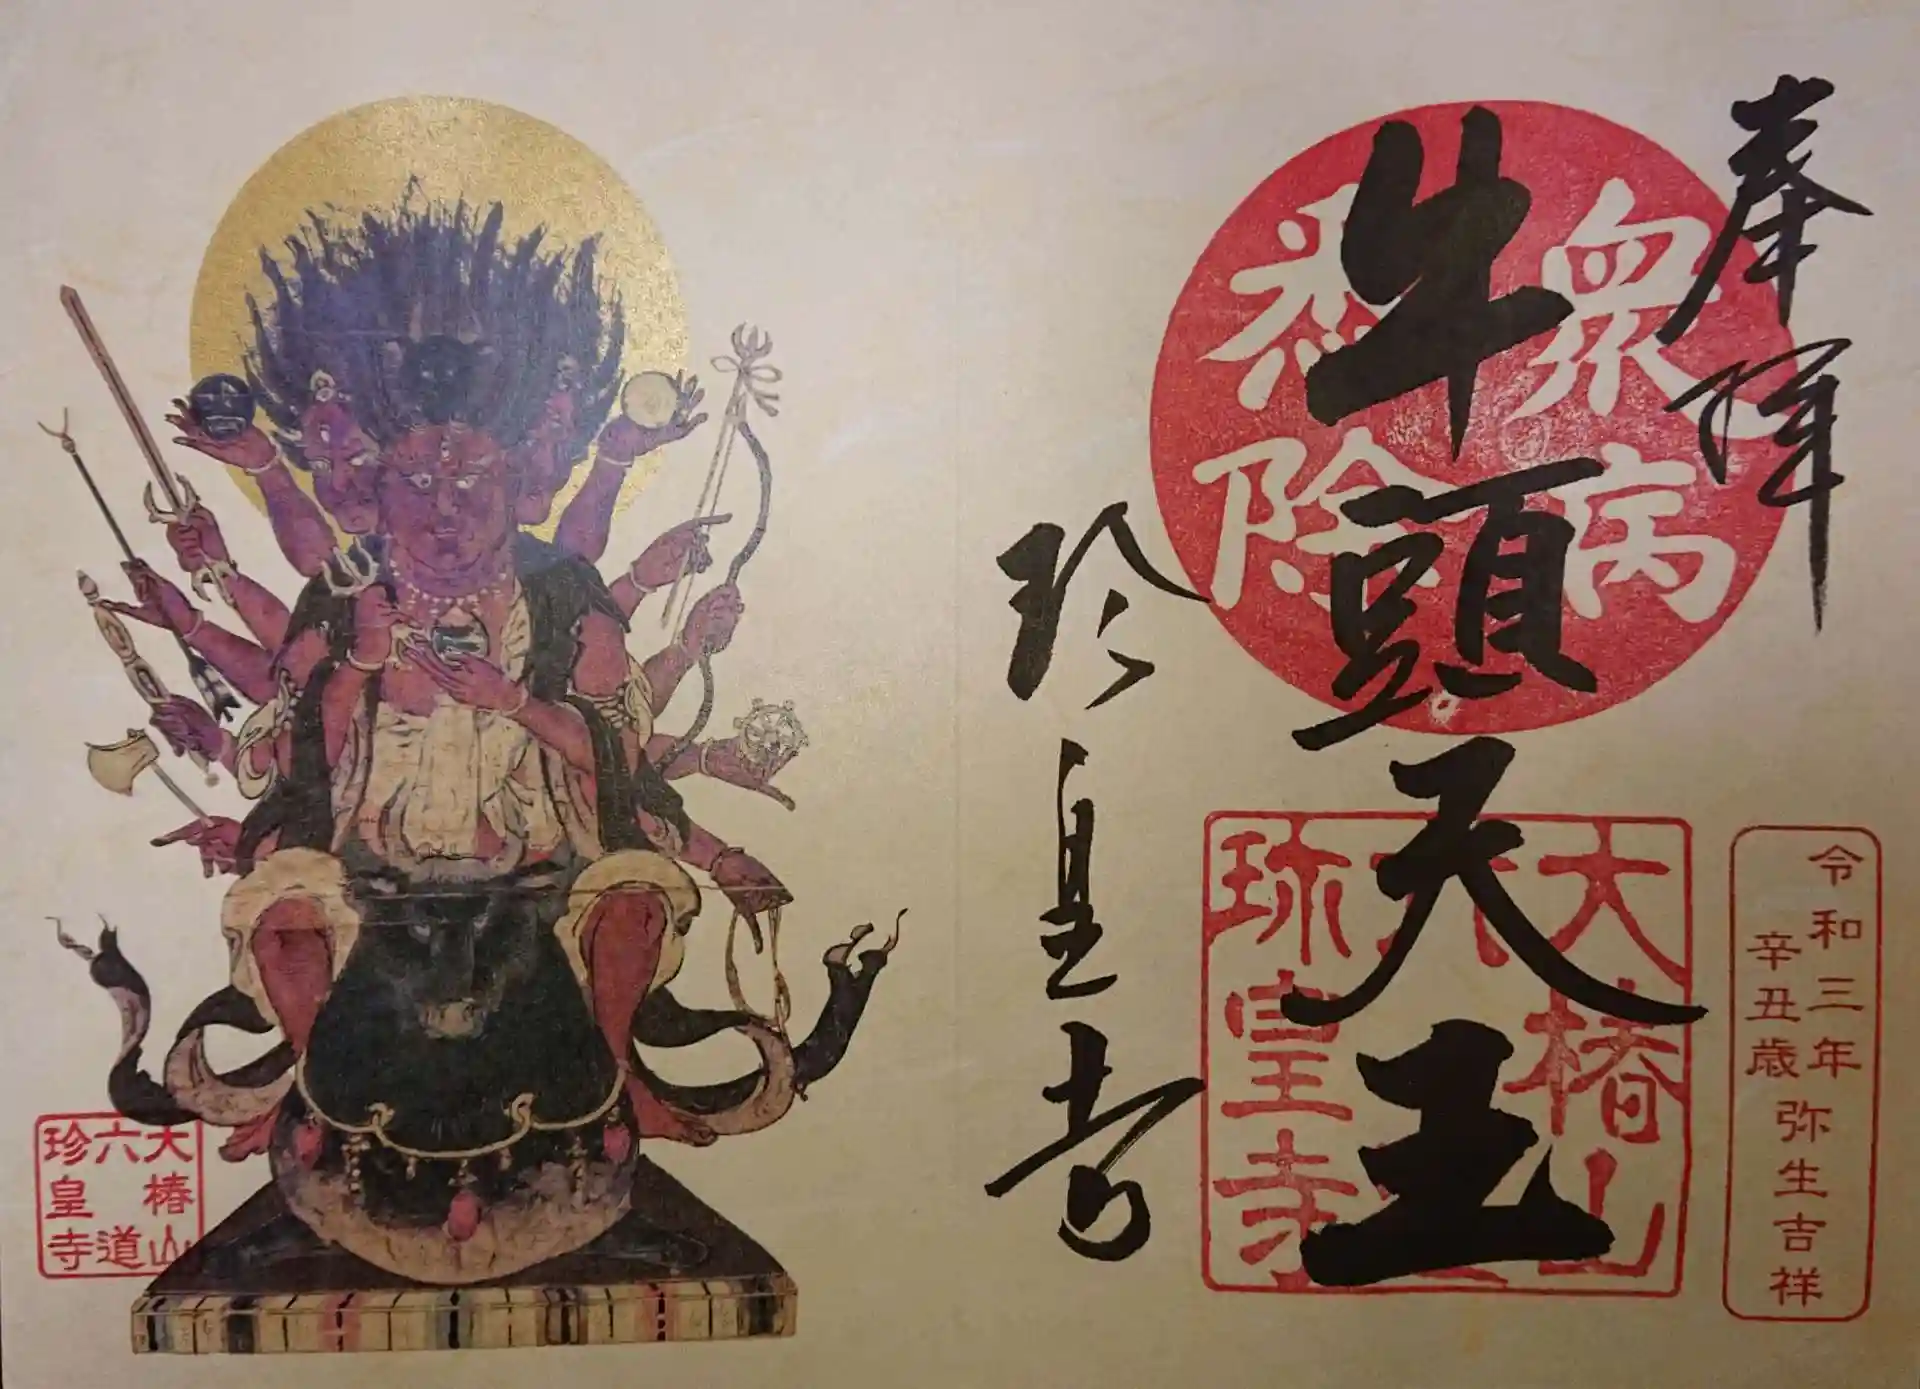 奉拝
衆病
悉除
牛頭天王
大椿山
六道
珍皇寺
珍皇寺
令和三年
辛丑歳
弥生吉祥
大椿山
六道
珍皇寺